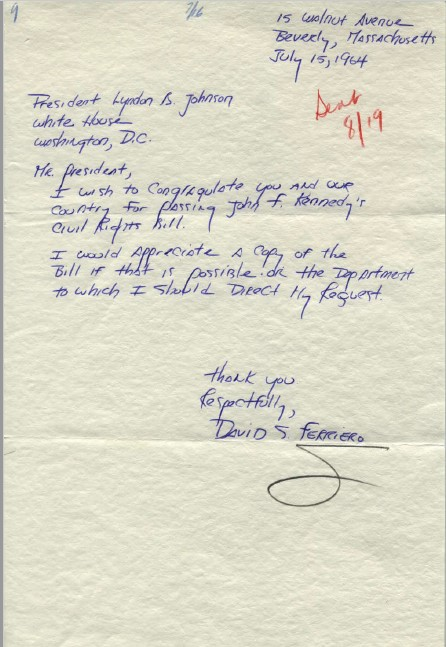 9
7/16
15 Walnut Avenue
Beverly, Massachusetts
July 15, 1964
Sent
8/19
President Lyndon B. Johnson
White House
Washington, D.C.
Mr. President,
I wish to Congragulate you and our
Country for passing John F. Kennedy's
Civil Rights Bill.
I would Appreciate A Copy of the
Bill if that is possible or the Department
to which I Should Direct My Request.
Thank you
Respectfully,
David S. Ferriero